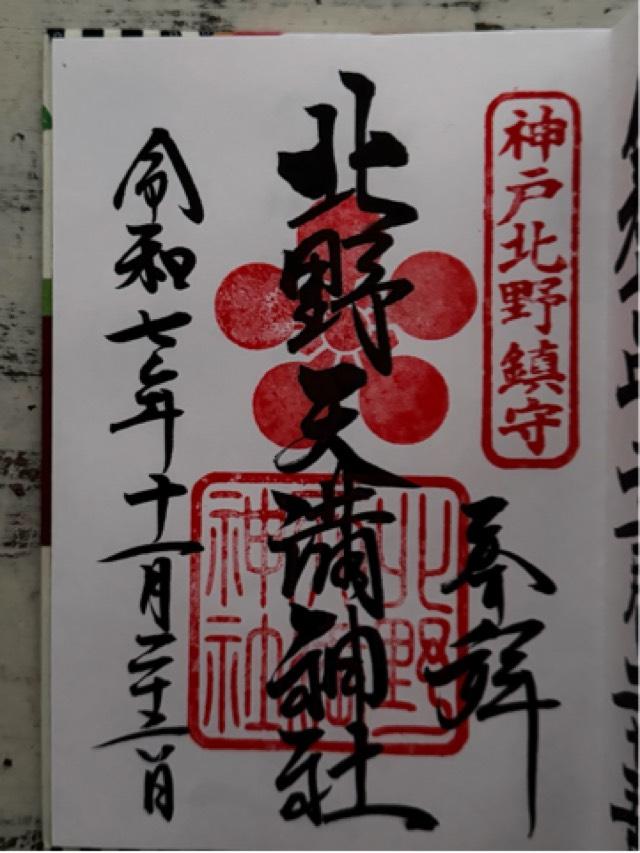 神戸北野鎮守
奉拝
北野天満神社
北野
神社
令和七年十一月二十三日